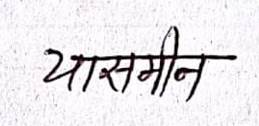 यासमीन